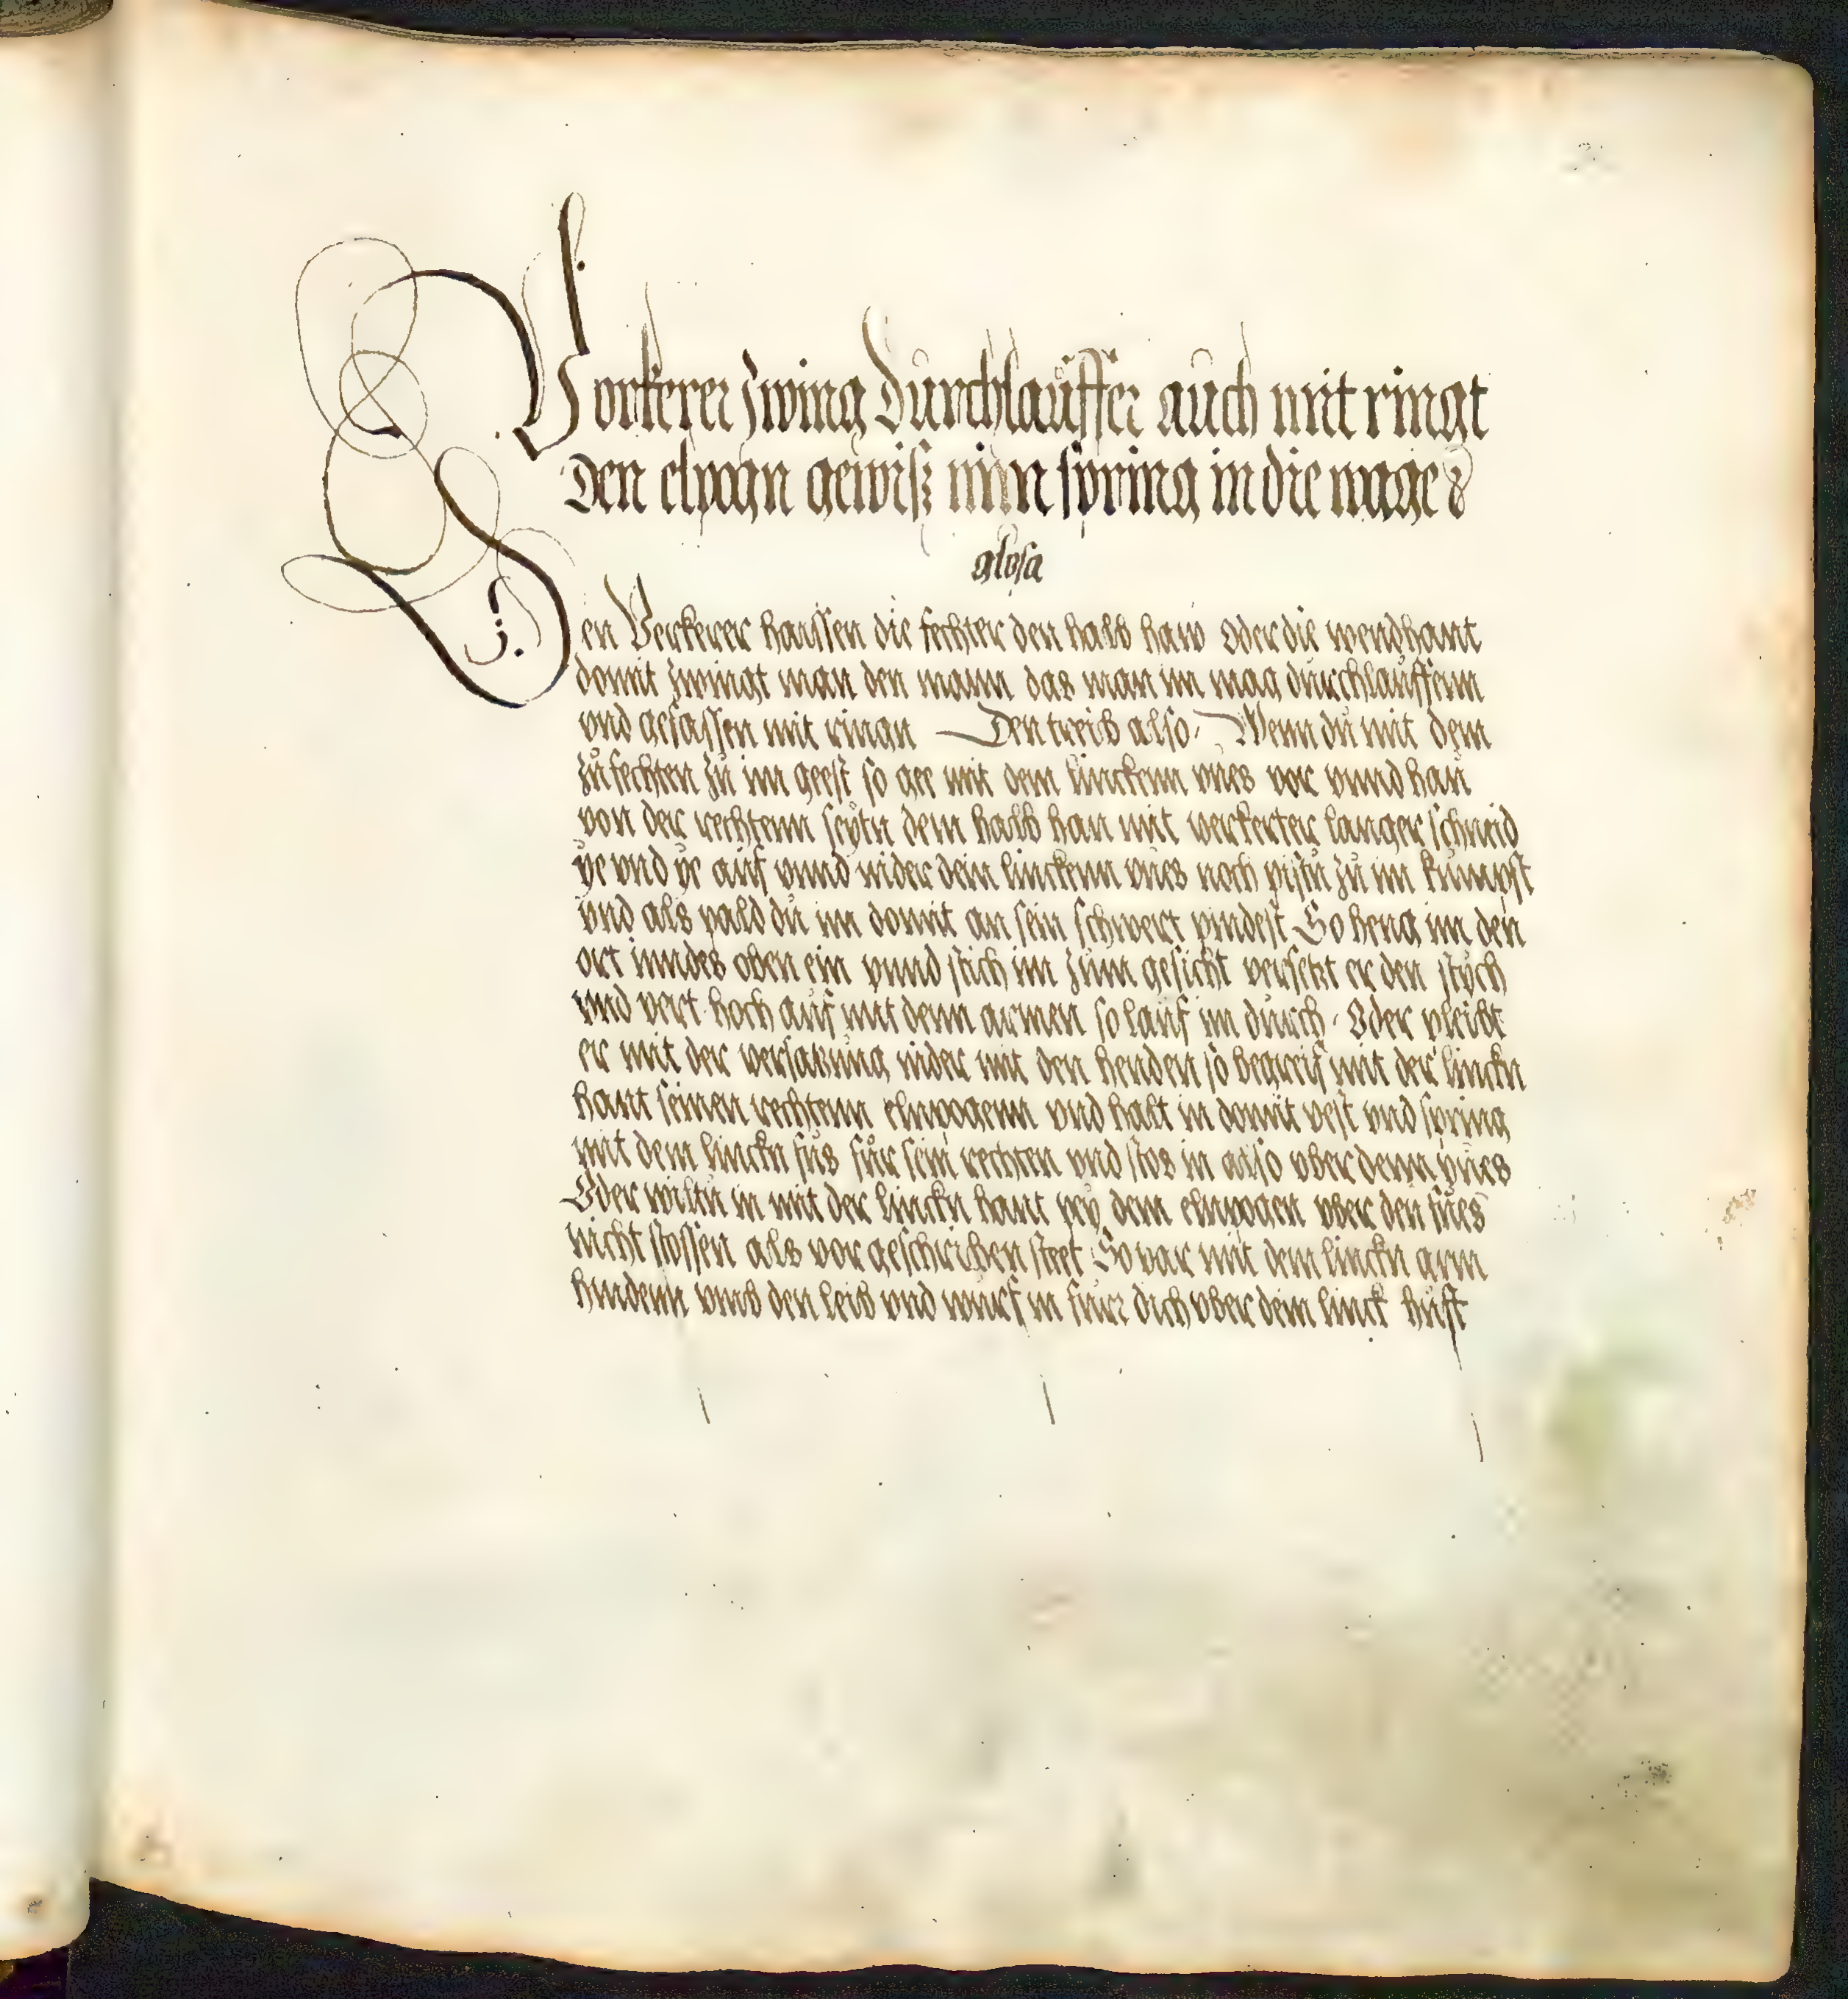 Vorkerer zwing durchlauffer auch mit ringt
Den elpogn gewiß nim spring in die wage
glosa
Den Verkerer haissen die fechter den halb haw oder die wendhant
domit zwingt man den mann das man im mag durchlauffenn
vnd gefassen mit ringn Den treib also Wenn du mit dem
zufechten zu im geest so gee mit dem linckenn vues vor vnnd hau
von der rechtenn seytn dem halb hau mit verkerter langer schneid
ye vnd ye auf vnnd nider dein linckenn vues noch pistu zu im kumpst
vnd als pald du im domit an sein schwert pindest So heng im den
ort inndes oben ein vnnd stich im zum gesicht versetzt er den stych
vnd vert hoch auf mit denn armen so lauf im durch Oder pleibt
er mit der versatzung nider mit den henden so begreif mit der linckn
hant seinen rechtenn elnpogenn vnd halt in domit vest vnd spring
mit dem linckn fus für sein rechten vnd stos in also vber denn vues
Oder wiltu in mit der linckn hant pey dem elnpogen vber den fues
nicht stossen als vor geschriben steet So var mit dem linckn arm
hindenn vmb den leib vnd wurf in fur dich vber dein linck huft